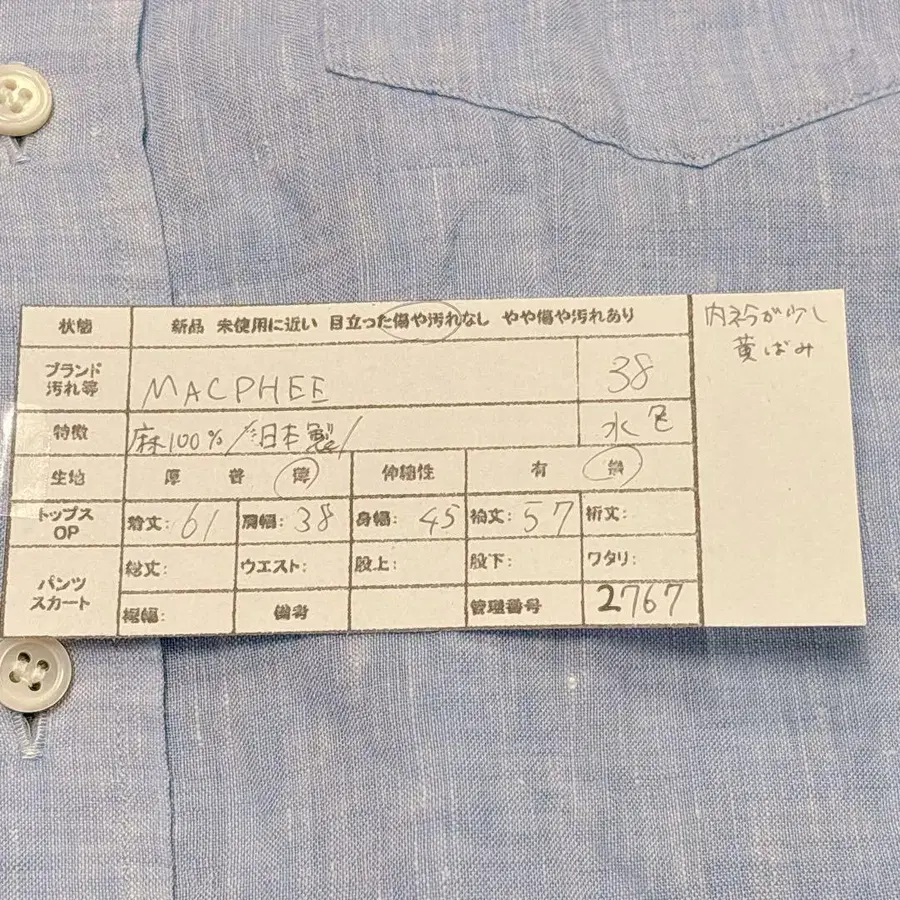 状態 新品 未使用に近い 目立った傷や汚れなし やや傷や汚れあり
ブランド
汚れ等 MACPHEE 38
特徴 麻100%/日本製/ 水色
生地 厚 普 薄 伸縮性 有 無
トップス
OP 着丈: 61 肩幅: 38 身幅: 45 袖丈: 57 裄丈:
パンツ
スカート 総丈: ウエスト: 股上: 股下: ワタリ:
裾幅: 備考 管理番号 2767
内衿が少し
黄ばみ